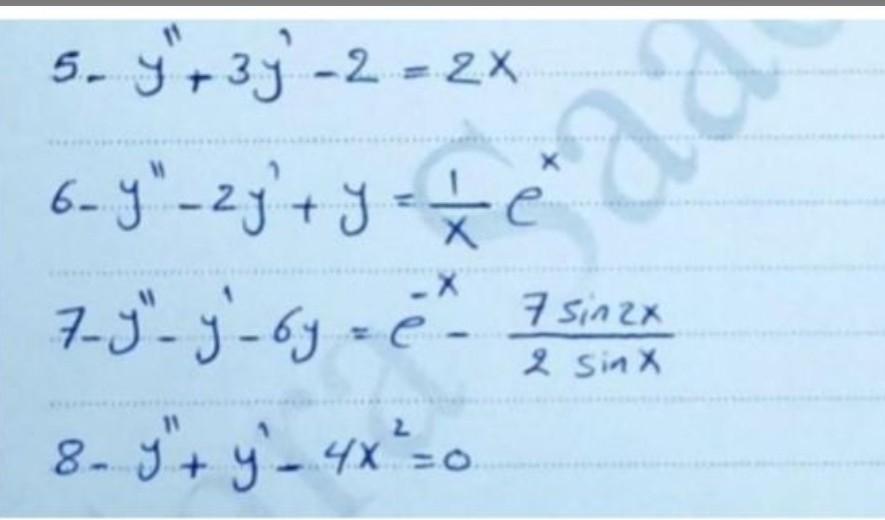 5- y'' + 3y' - 2 = 2x
6- y'' - 2y' + y = 1/x e^x
7- y'' - y' - 6y = e^-x - 7 sin2x / 2 sinx
8- y'' + y' - 4x^2 = 0